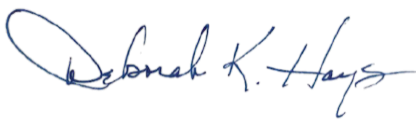 Deborah K. Hays